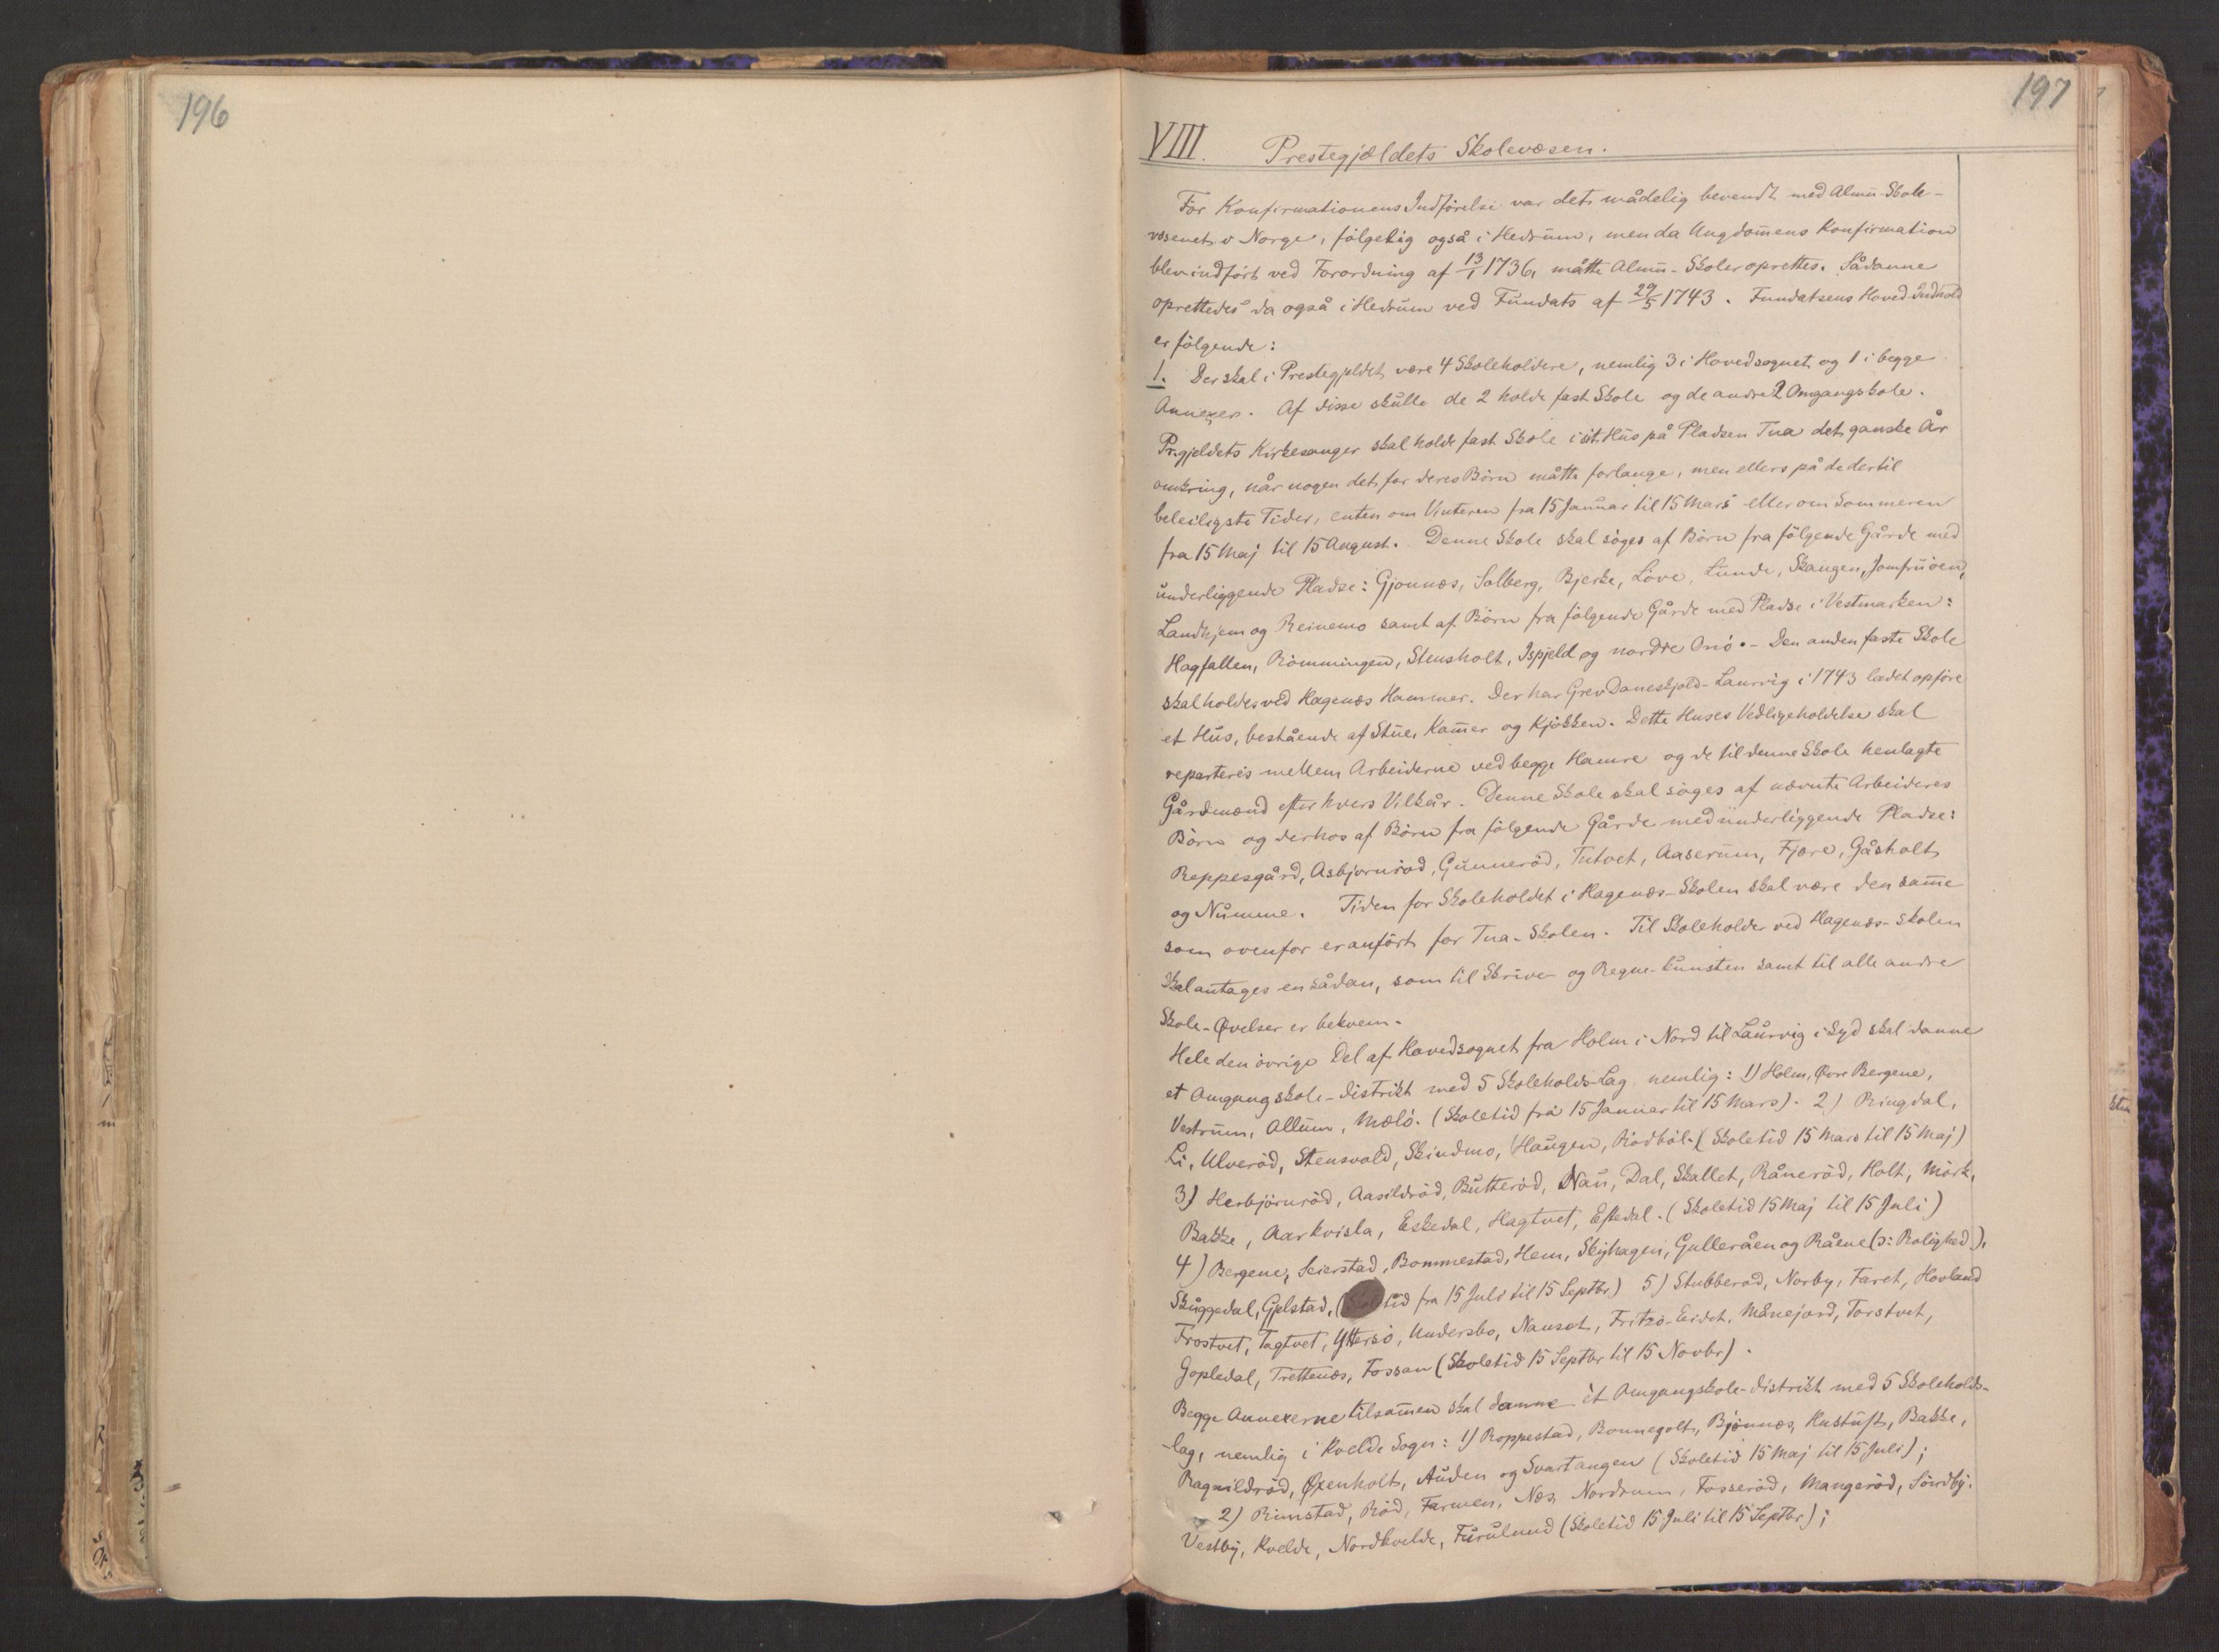 196
197
VIII. Prestegjældets Skolevæsen.
Før Konfirmationens Indførelse var det mådelig bevendt med Almu-Skole-
væsenet i Norge, følgelig også i Hedrum, men da Ungdom̄ens Konfirmation
blev indført ved Forordning af 13/1 1736, måtte Almu-Skoler oprettes. Sådanne
oprettedes da også i Hedrum ved Fundats af 29/5 1743. Fundatsens Hoved-Indhold
er følgende:
1. Der skal i Prestegjeldet være 4 Skoleholdere, nemlig 3 i Hovedsognet og 1 i begge
Annexer. Af disse skulle de 2 holde fast Skole og de andre 2 Omgangskole.
Pr.gjeldets Kirkesanger skal holde fast Skole i sit Hus på Pladsen Tua det ganske År
omkring, når nogen det for deres Børn måtte forlange, men ellers på de dertil
beleiligste Tider, enten om Vinteren fra 15 Januar til 15 Mars eller om Sommeren
fra 15 Maj til 15 August. Denne Skole skal søges af Børn fra følgende Gårde med
underliggende Pladse: Gjønnæs, Solberg, Bjerke, Løve, Lunde, Skaugen, Jomfruøen,
Landhjem og Reinemo samt af Børn fra følgende Gårde med Pladse i Vestmarken:
Hagfallen, Rømmingen, Stensholt, Ispjeld og nordre Onø. - Den anden faste Skole
skal holdes ved Hagenæs Hammer. Der har Grev Daneskjold-Laurvig i 1743 ladet opføre
et Hus, bestående af Stue, Kam̄er og Kjøkken. Dette Huses Vedligeholdelse skal
reparteres mellem Arbeiderne ved begge Hamre og de til denne Skole henlagte
Gårdmænd efter hvers Vilkår. Denne Skole skal søges af nævnte Arbeideres
Børn og derhos af Børn fra følgende Gårde med underliggende Pladse:
Reppesgård, Asbjørnrød, Gunnerød, Tutvet, Aaserum, Fjære, Gåsholt
og Numme. Tiden for Skoleholdet i Hagenæs-Skolen skal være den sam̄e
som ovenfor er anført for Tua-Skolen. Til Skoleholder ved Hagenæs-Skolen
skal antages en sådan, som til Skrive- og Regne-Kunsten samt til alle andre
Skole-Øvelser er bekvem.
Hele den øvrige Del af Hovedsognet fra Holm i Nord til Laurvig i Syd skal danne
et Omgangskole-Distrikt med 5 Skoleholds-Lag nemlig: 1) Holm, Øvre Bergene,
Vestrum, Allum, Mælø. (Skoletid fra 15 Januar til 15 Mars). 2) Ringdal,
Li, Ulverød, Stensvold, Skindmo, Haugen, Rødbøl. (Skoletid 15 Mars til 15 Maj)
3) Herbjørnrød, Aasildrød, Butterød, Nau, Dal, Skallet, Rånerød, Holt, Mørk,
Bakke, Aarkvisla, Eskedal, Hagtvet, Eftedal. (Skoletid 15 Maj til 15 Juli)
4) Bergene, Seierstad, Bommestad, Hem, Skyhagen, Gulleråen og Råene (ɔ: Rolighed),
Skuggedal, Gjelstad, (tid fra 15 Juli til 15 Septbr) 5) Stubberød, Norby, Faret, Hovland
Frostvet, Tagtvet, Yttersø, Undersbo, Nanset, Fritzø-Eidet, Månejord, Torstvet,
Gopledal, Trettenæs, Fossan (Skoletid 15 Septbr til 15 Novbr).
Begge Annexerne tilsam̄en skal danne ét Omgangskole-Distrikt med 5 Skoleholds-
-lag, nemlig i Kvelde Sogn: 1) Roppestad, Bonnegolt, Bjønnæs, Hustuft, Bakke,
Ragnildrød, Øxenholt, Auden og Svartangen (Skoletid 15 Maj til 15 Juli);
2) Rimstad, Rød, Farmen, Næs, Nordrum, Fosserød, Mangerød, Sørdby.
Vestby, Kvelde, Nordkvelde, Furulund (Skoletid 15 Juli til 15 Septbr);